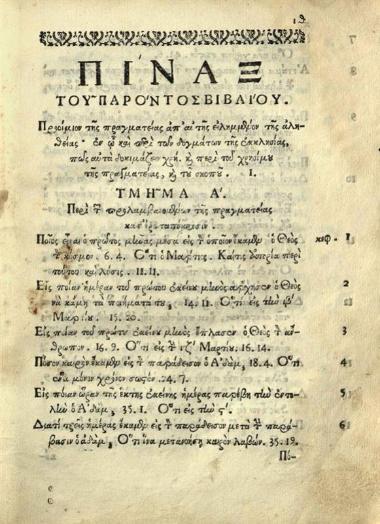 ΠΙΝΑΞ
ΤΟΥ ΠΑΡΟΝΤΟΣ ΒΙΒΛΙΟΥ.
Προοίμιον τῆς πραγματείας
θείας· ἐν ᾧ καὶ περὶ τῶν δογμάτων τῆς ἐκκλησίας,
πῶς αὐτὰ δοκιμάζειν χρή. ἢ περὶ τοῦ χρησίμου
τῆς πραγματείας, ἢ τοῦ σκοποῦ. 1.
ΤΜΗΜΑ Α΄.
Περὶ τῶν προλαμβανομένων τῆς πραγματείας
Ποῖος εἶναι ὁ πρῶτος μῆνας μέσα εἰς τὸν ὁποῖον ἔκαμεν ὁ Θεὸς κεφ. 1
τὸν κόσμον. 6. 4. Ὅτι ὁ Μάρτης. Καί τις ἀπορία περὶ
τούτου καὶ λύσις. 11. 11.
Εἰς ποίαν ἡμέραν τοῦ πρώτου ἐκείνου μηνὸς ἄρχησεν ὁ Θεὸς 2
νὰ κάμῃ τὰ ποιήματά του, 14. 11. Ὅτι εἰς τὴν ιβ΄
Μαρτίου. 15. 20.
Εἰς ποίαν τοῦ πρώτου ἐκείνου μηνὸς ἔπλασεν ὁ Θεὸς τὸν ἄν- 3
θρωπον. 16. 9. Ὅτι εἰς τὰς ιζ΄ Μαρτίου. 16. 14.
Πόσον καιρὸν ἔκαμεν εἰς τὸν παράδεισον ὁ Ἀδάμ, 18. 4. Ὅτι 4
ἕνα μόνον χρόνον σωστόν. 24. 7.
Εἰς ποίαν ὥραν τῆς ἕκτης ἐκείνης ἡμέρας παρέβη τὴν ἐντο- 5
λὴν ὁ Ἀδάμ, 35. 1. Ὅτι εἰς τὴν ς΄.
Διατί τρεῖς ἡμέρας ἔκαμεν εἰς τὸν παράδεισον μετὰ τὴν παρά- 6
βασιν ὁ ἀδάμ, Ὅτι ἵνα μετανοήσῃ καιρὸν λαβών. 35. 19.
Πί-